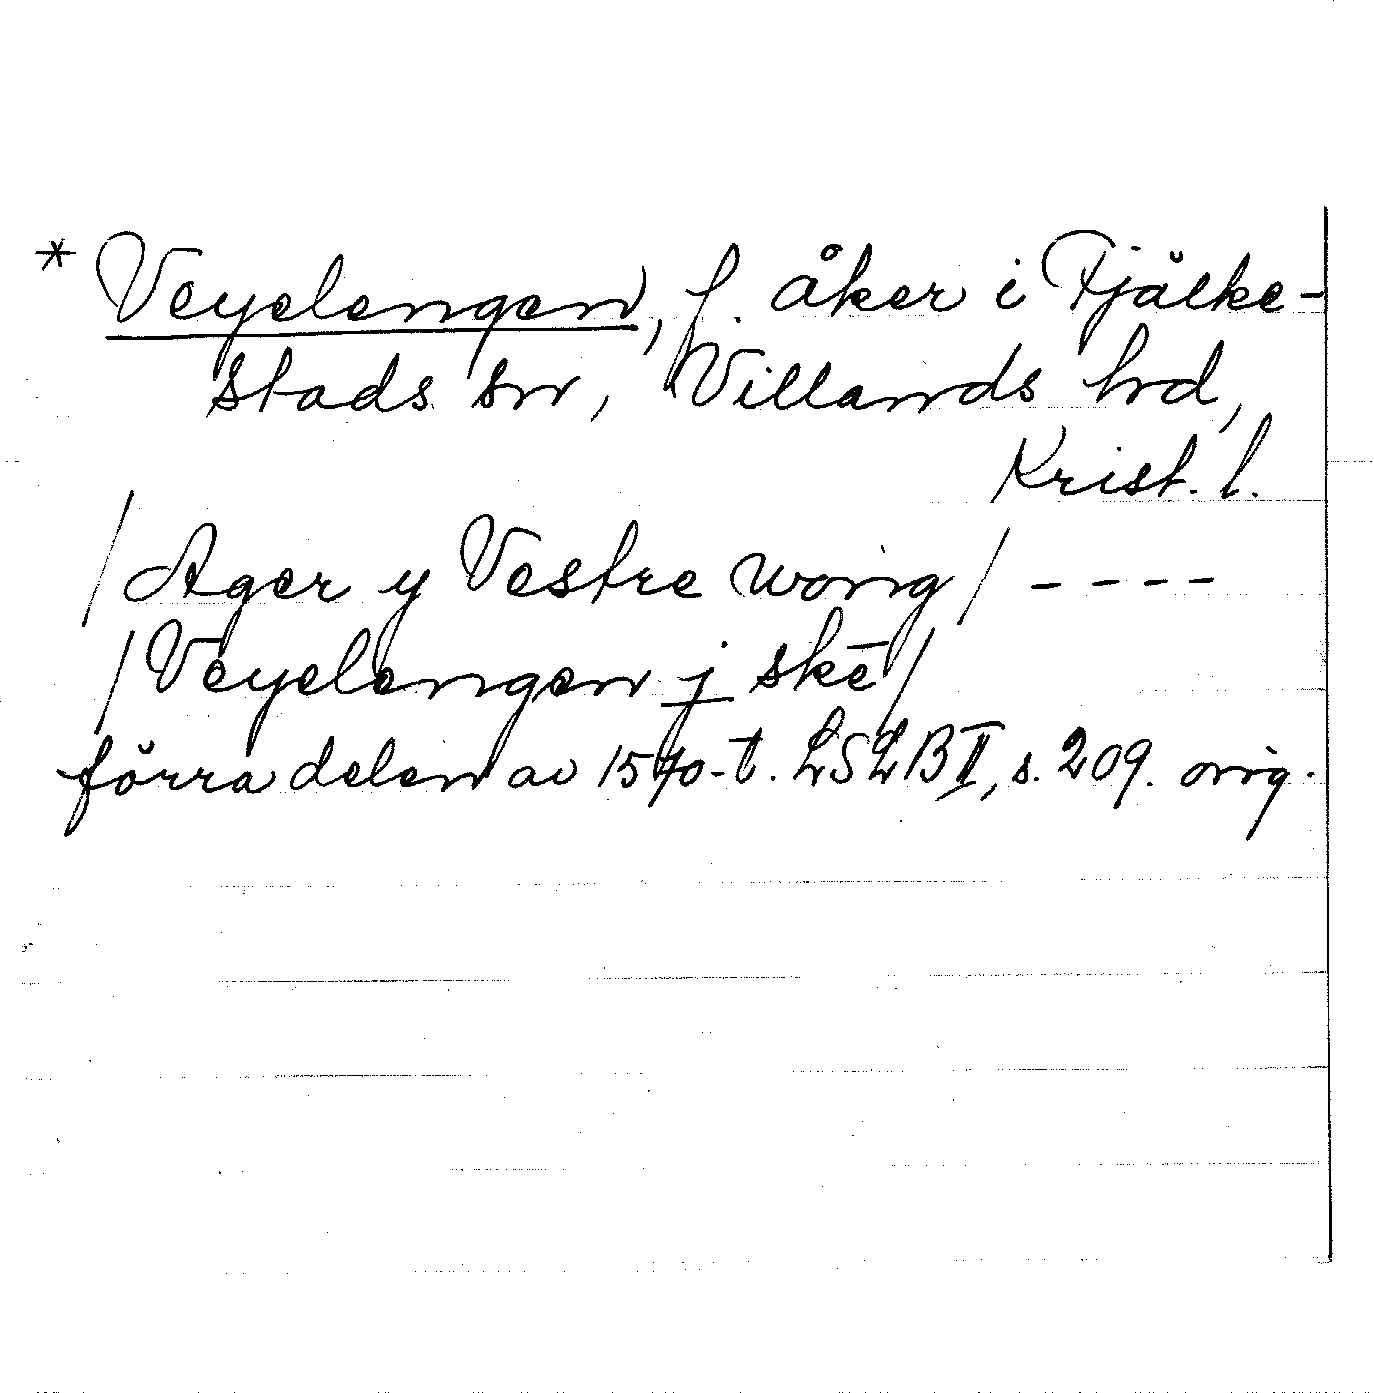 * Veyelengen, f. åker i Fjälke-
stads sn, Villands hrd,
Krist. l.
/Ager y Vestre wong/ ----
/Veyelengen j skē/
förra delen av 1570-t. LSLB II, s. 209. orig.